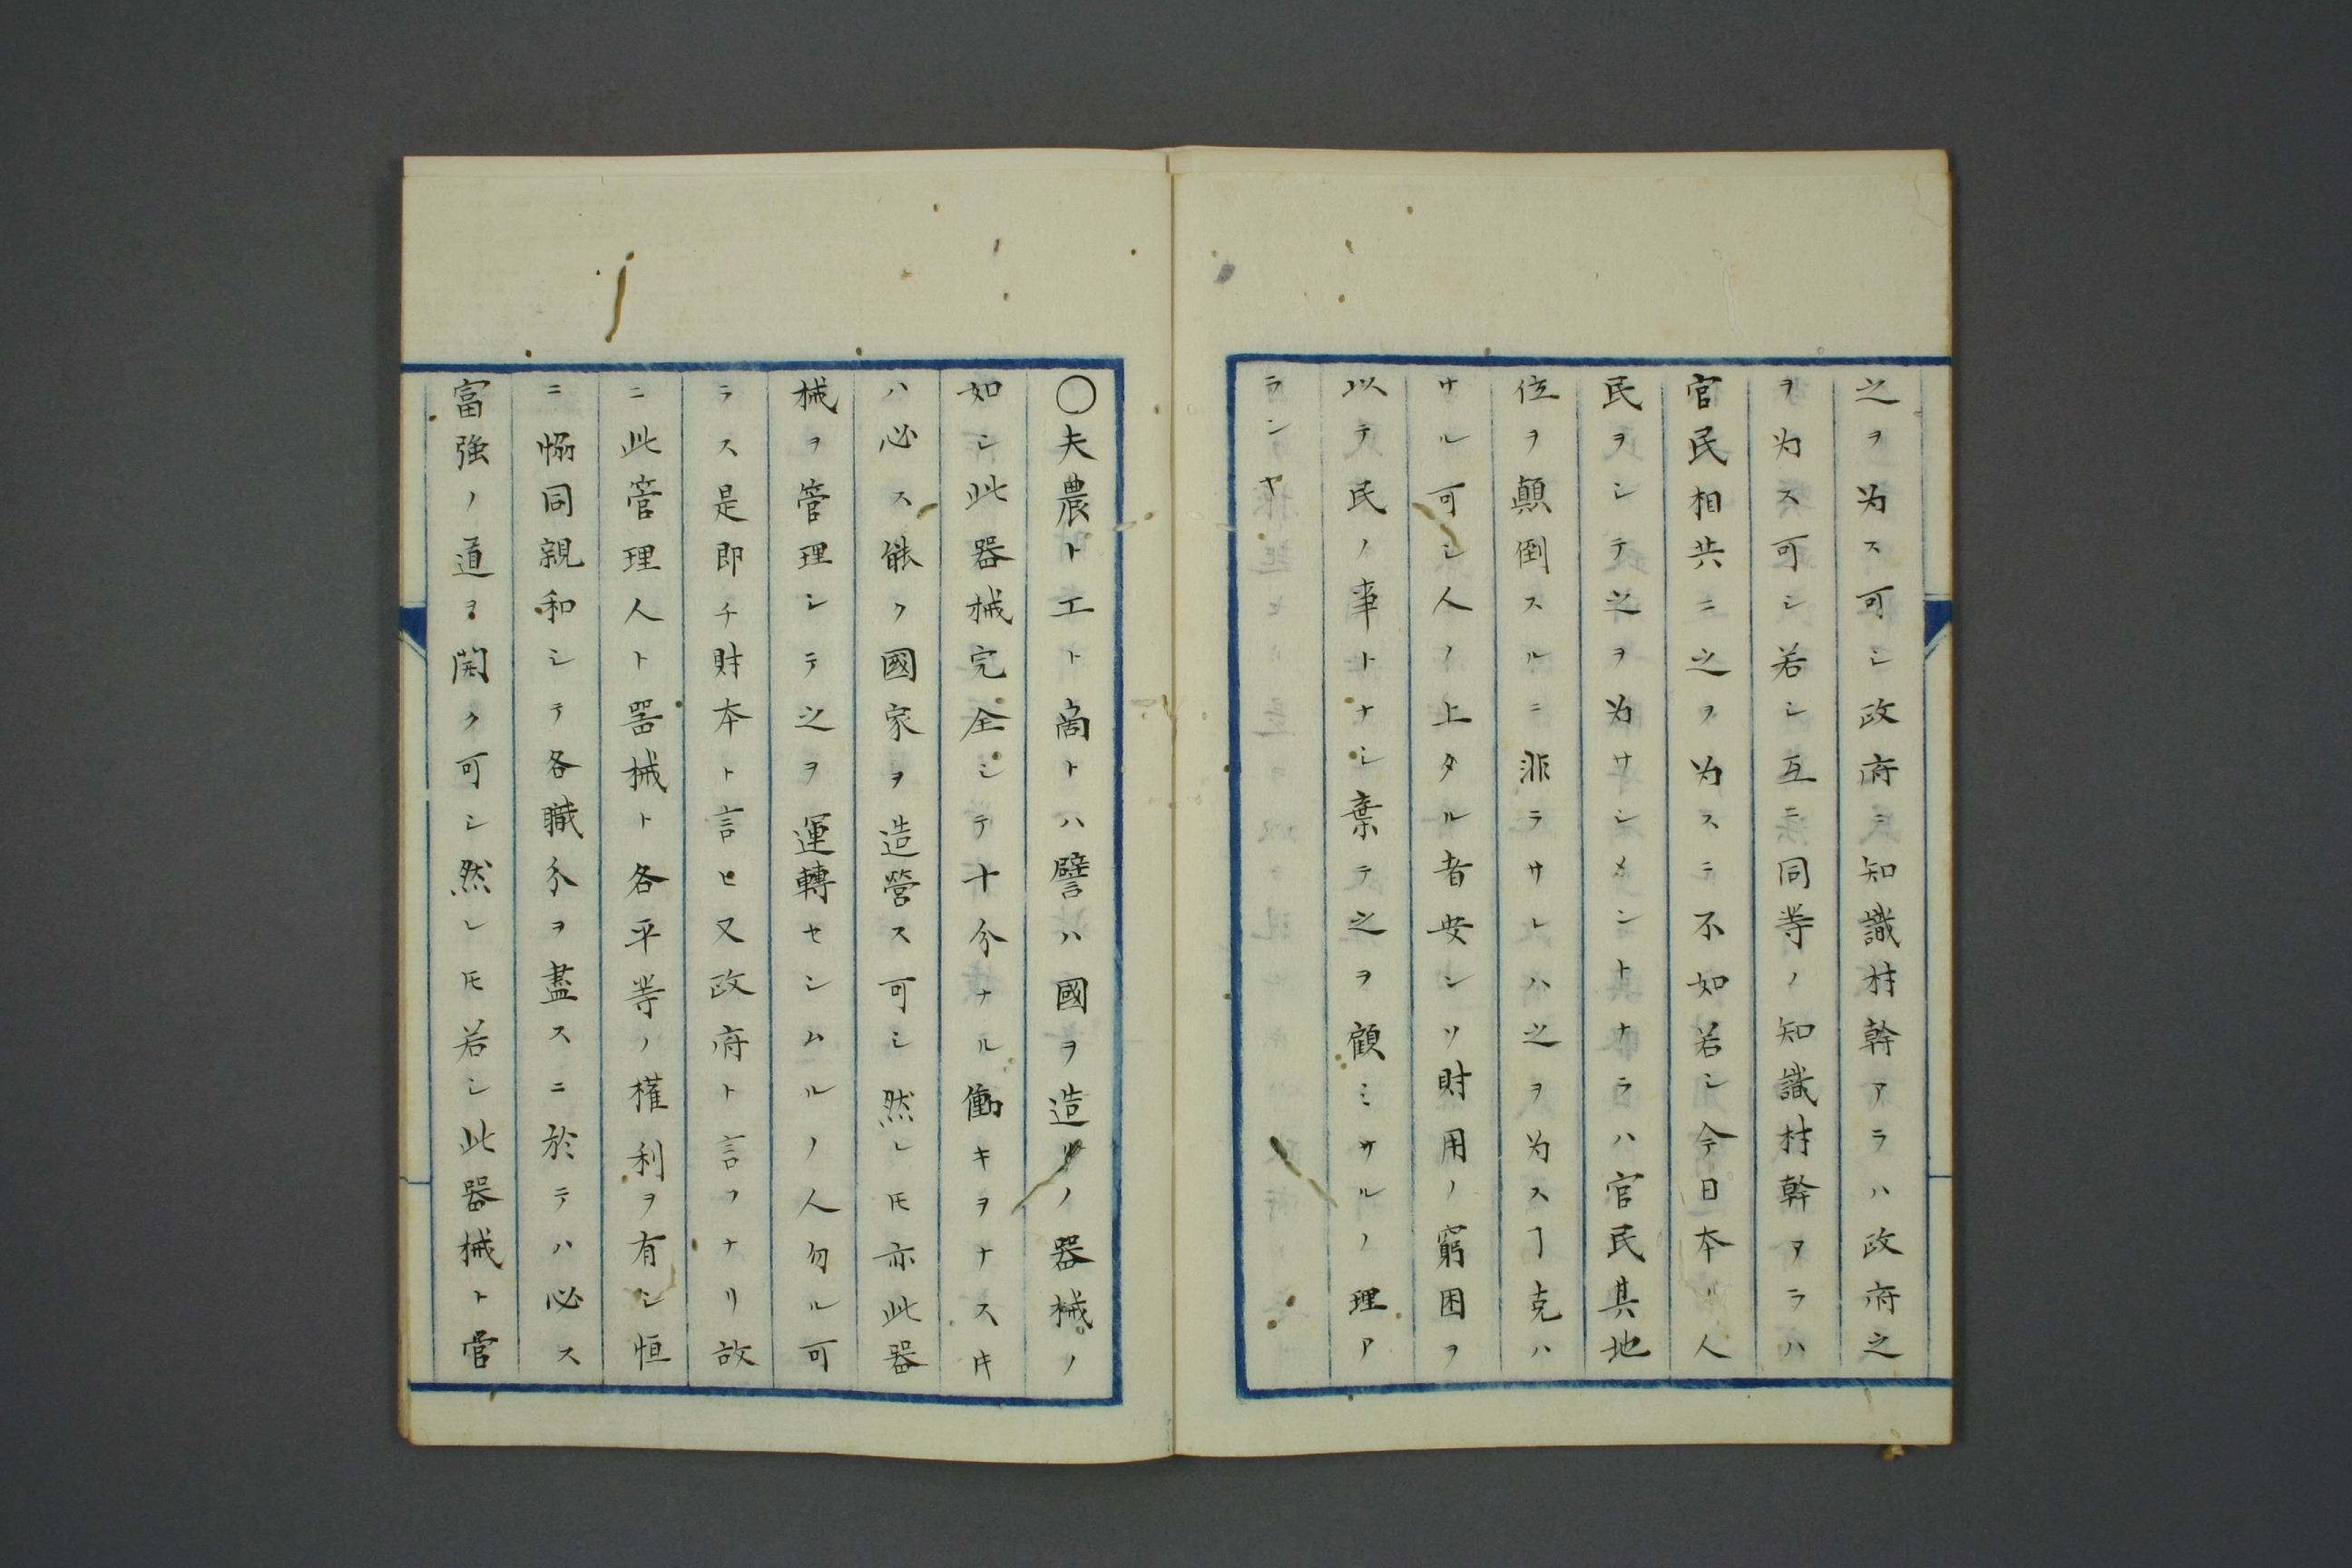 之ヲ为ス可シ政府ニ知識材幹アラハ政府之
ヲ为ス可シ若シ互ニ同等ノ知識材幹アラハ
官民相共ニ之ヲ为スニ不如若シ今日本ノ人
民ヲシテ之ヲ为サシメントナラハ官民其地
位ヲ顛倒スルニ非ラサレハ之ヲ为スヿ克ハ
サル可シ人ノ上タル者安ンソ財用ノ窮困ヲ
以テ民ノ事トナシ棄テ之ヲ顧ミサルノ理ア
ランヤ
〇夫農ト工ト商トハ譬ハ國ヲ造ルノ器械ノ
如シ此器械完全シテ十分ナル働キヲナス牛
ハ必ス能ク國家ヲ造營ス可シ然レ𪜈亦此器
械ヲ管理シテ之ヲ運轉セシムルノ人勿ル可
ラス是即チ財本ト言ヒ又政府ト言フナリ故
ニ此管理人ト噐械ト各平等ノ權利ヲ有シ恒
ニ恊同親和シテ各職分ヲ盡スニ於テハ必ス
富強ノ道ヲ開ク可シ然レ𪜈若シ此器械ト管